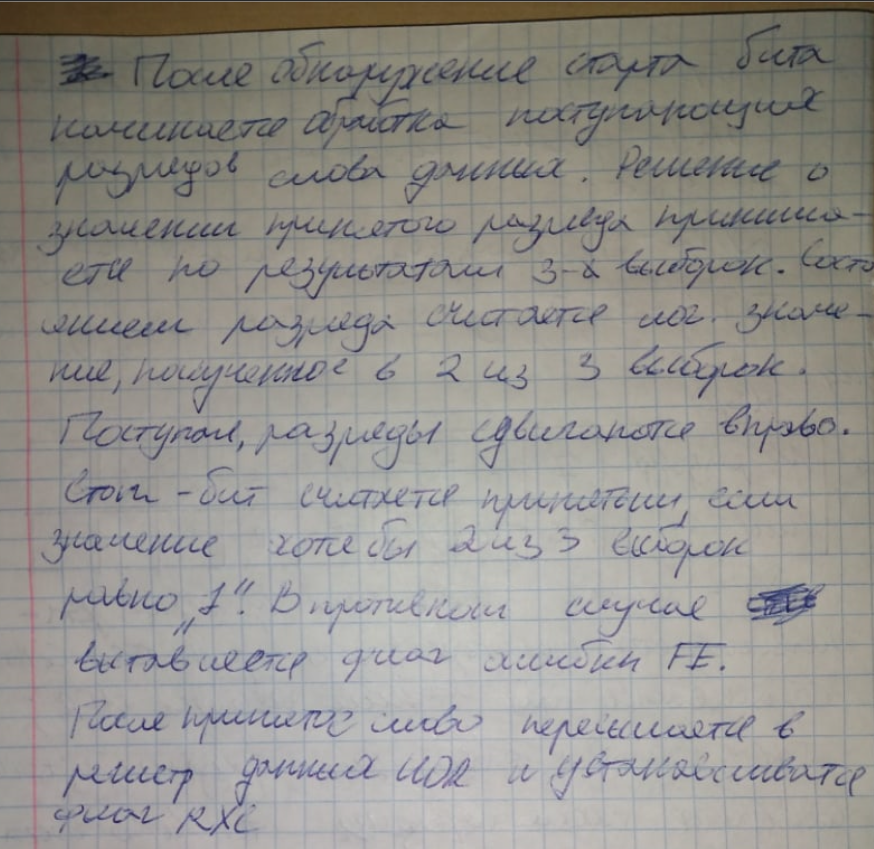 После обнаружение старта бита
начинается обработка поступающих
разрядов слова данных. Решение о
значении принятого разряда принима-
ется по результатам 3-х выборок. Состо
янием разряда считается лог. значе-
ние, полученное в 2 из 3 выборок.
Поступал, разряды сдвигаются вправо.
Стоп-бит считается принятым, если
значение хотя бы 2 из 3 выборок
равно „1“. В противном случае
выставляется флаг ошибки FE.
После принятое слово пересылается в
регистр данных UDR и устанавливатся
флаг RXC